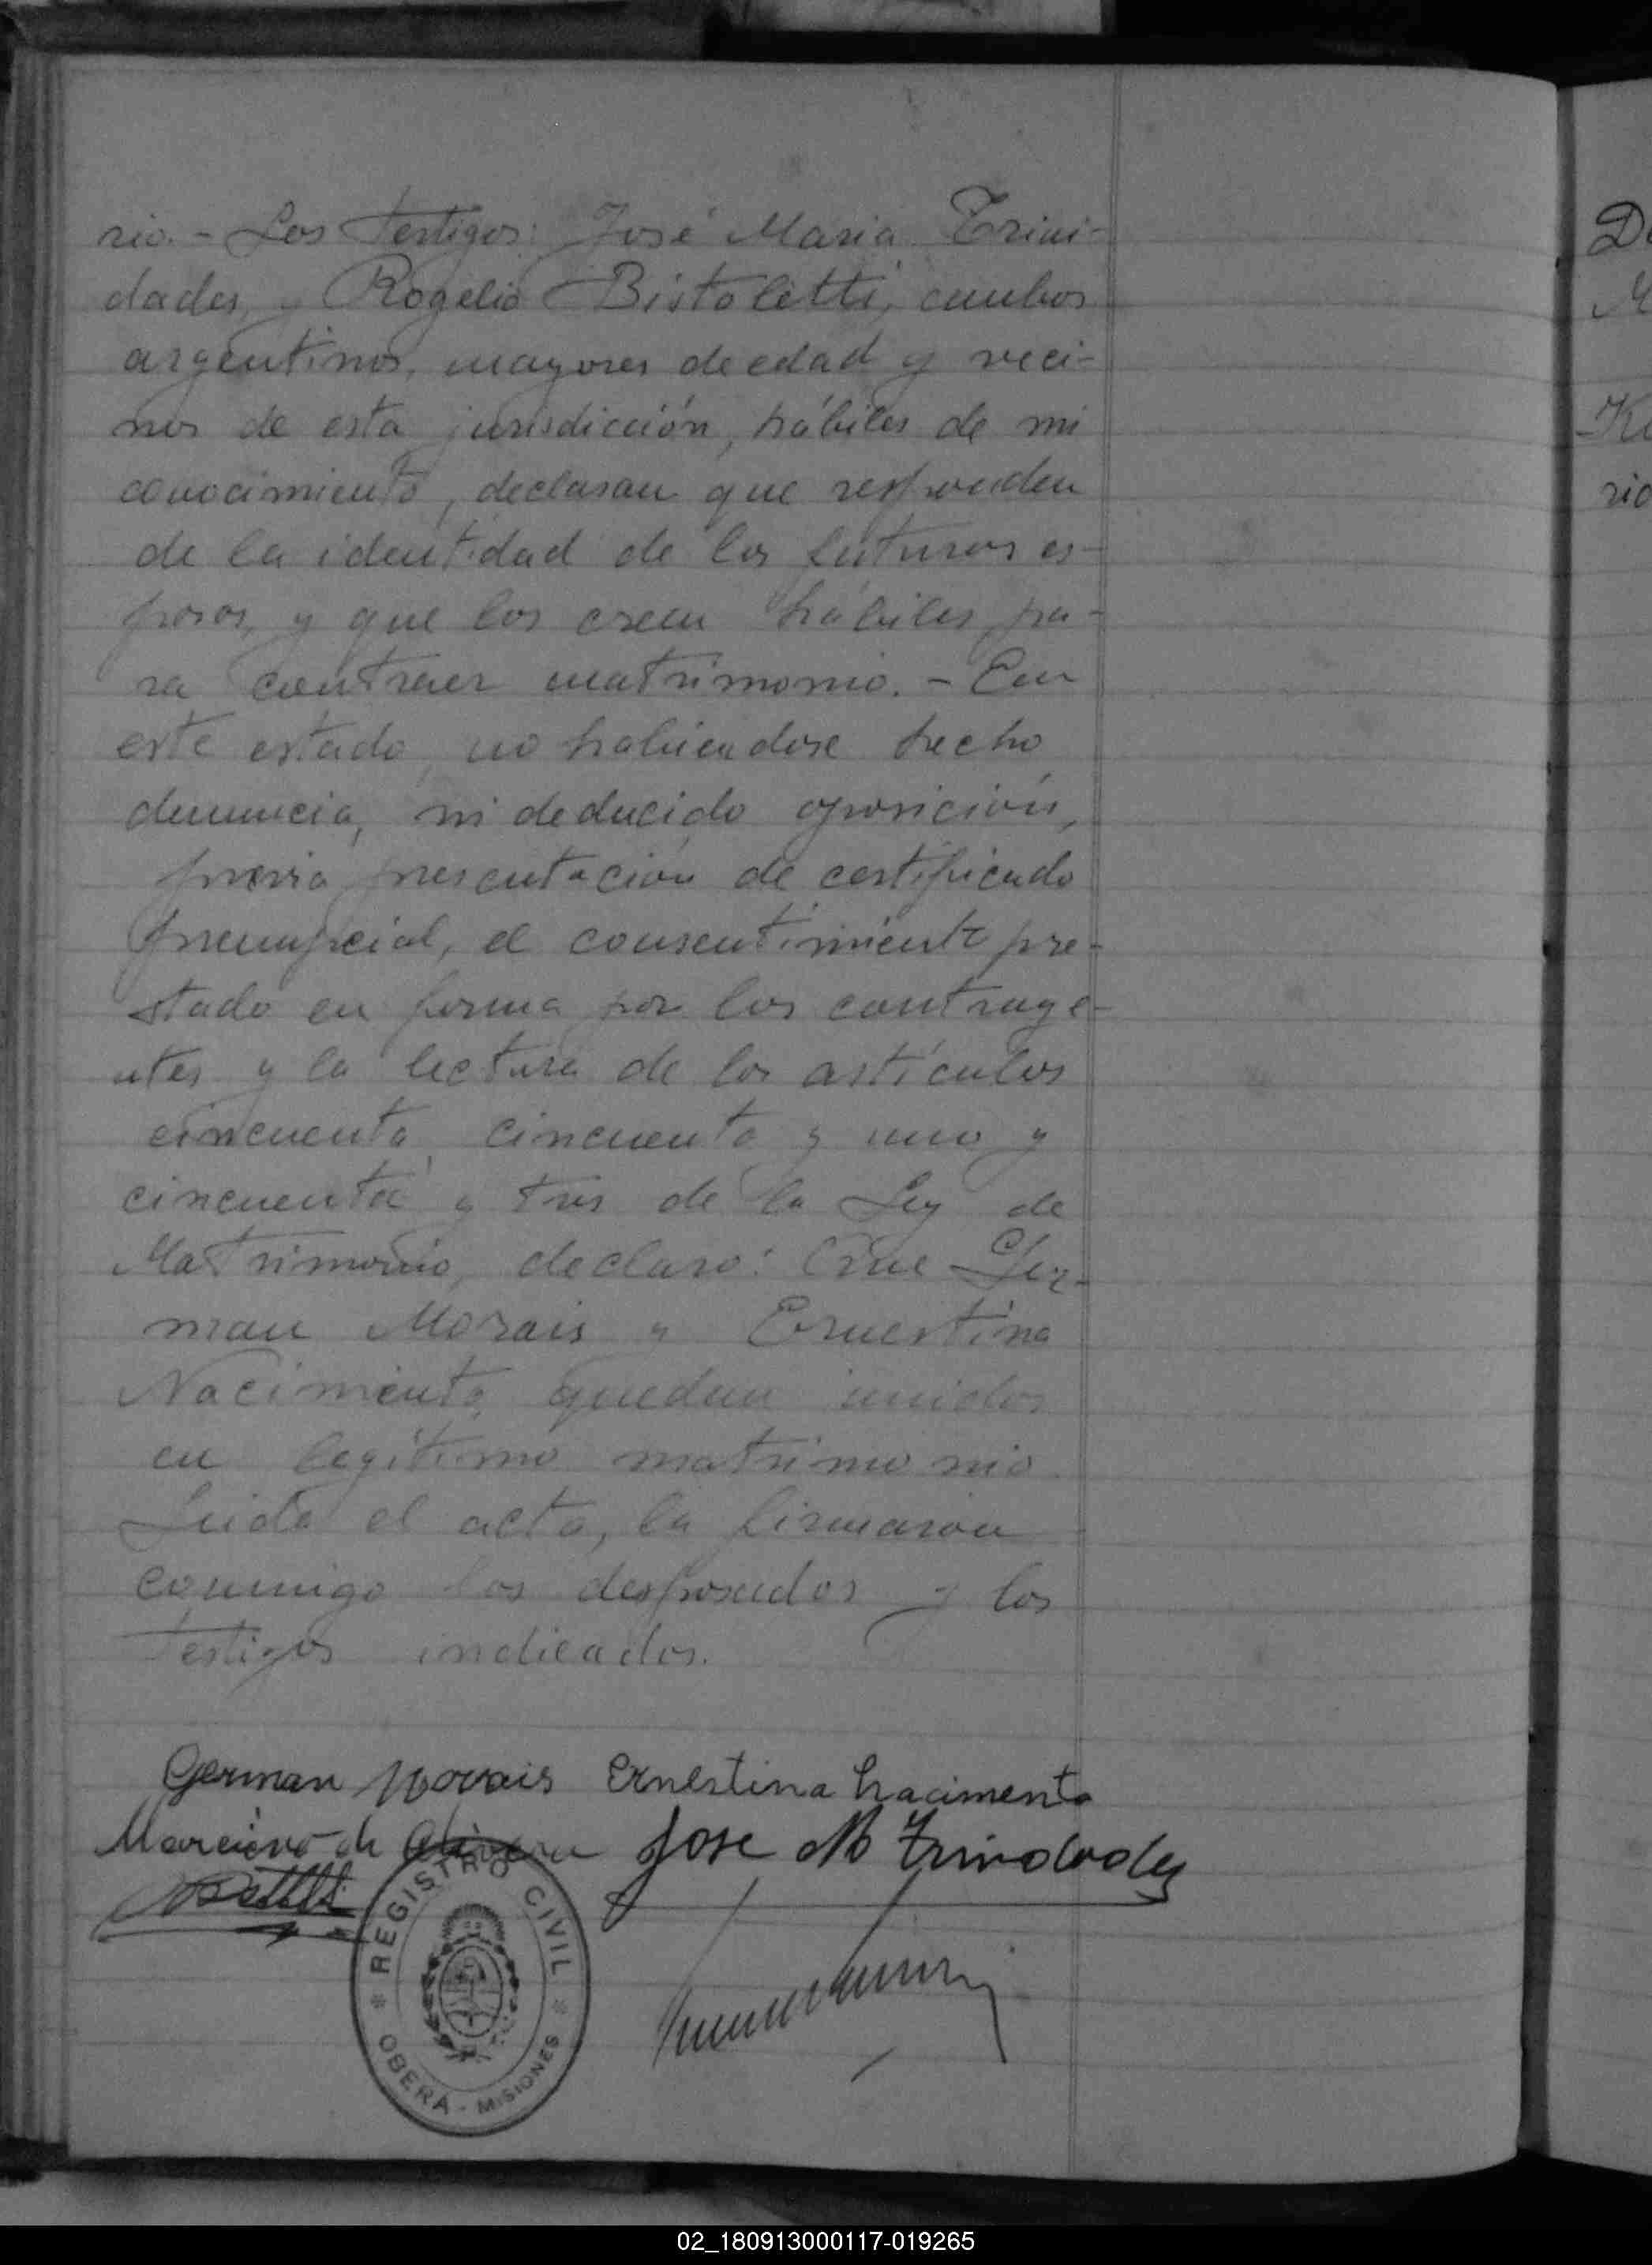 rio. - Los Testigos: José Maria Trini-
dades, y Rogelio Bistoletti, ambos
argentinos, mayores de edad y veci-
nos de esta jurisdicción, hábiles de mi
conocimiento, declaran que responden
de la identidad de los futuros es-
posos, y que los creen hábiles pa-
ra contraer matrimonio. - En
este estado, no habiendose hecho
denuncia, ni deducido oposición,
previa presentación de certificado
prenupcial, el consentimiento pre-
stado en forma por los contraye-
ntes y la lectura de los artículos
cincuenta, cincuenta y uno y
cincuenta y tres de la Ley de
Matrimonio, declaro: Que Ger-
man Morais y Ernestina
Nacimiento quedan unidos
en legítimo matrimonio
Leida el acta, la firmaron
conmigo los desposados y los
Testigos indicados.
German Morais Ernestina Nacimento
de Olivera Jose M Trindades
REGISTRO CIVIL
OBERÁ - MISIONES
De
M
rio
02_180913000117-019265